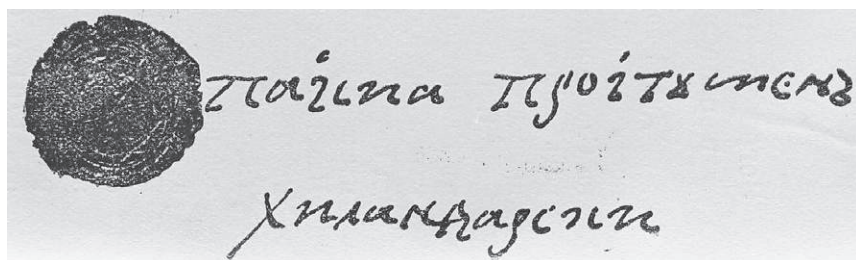 паісиа проігꙋменъ
хиландарски